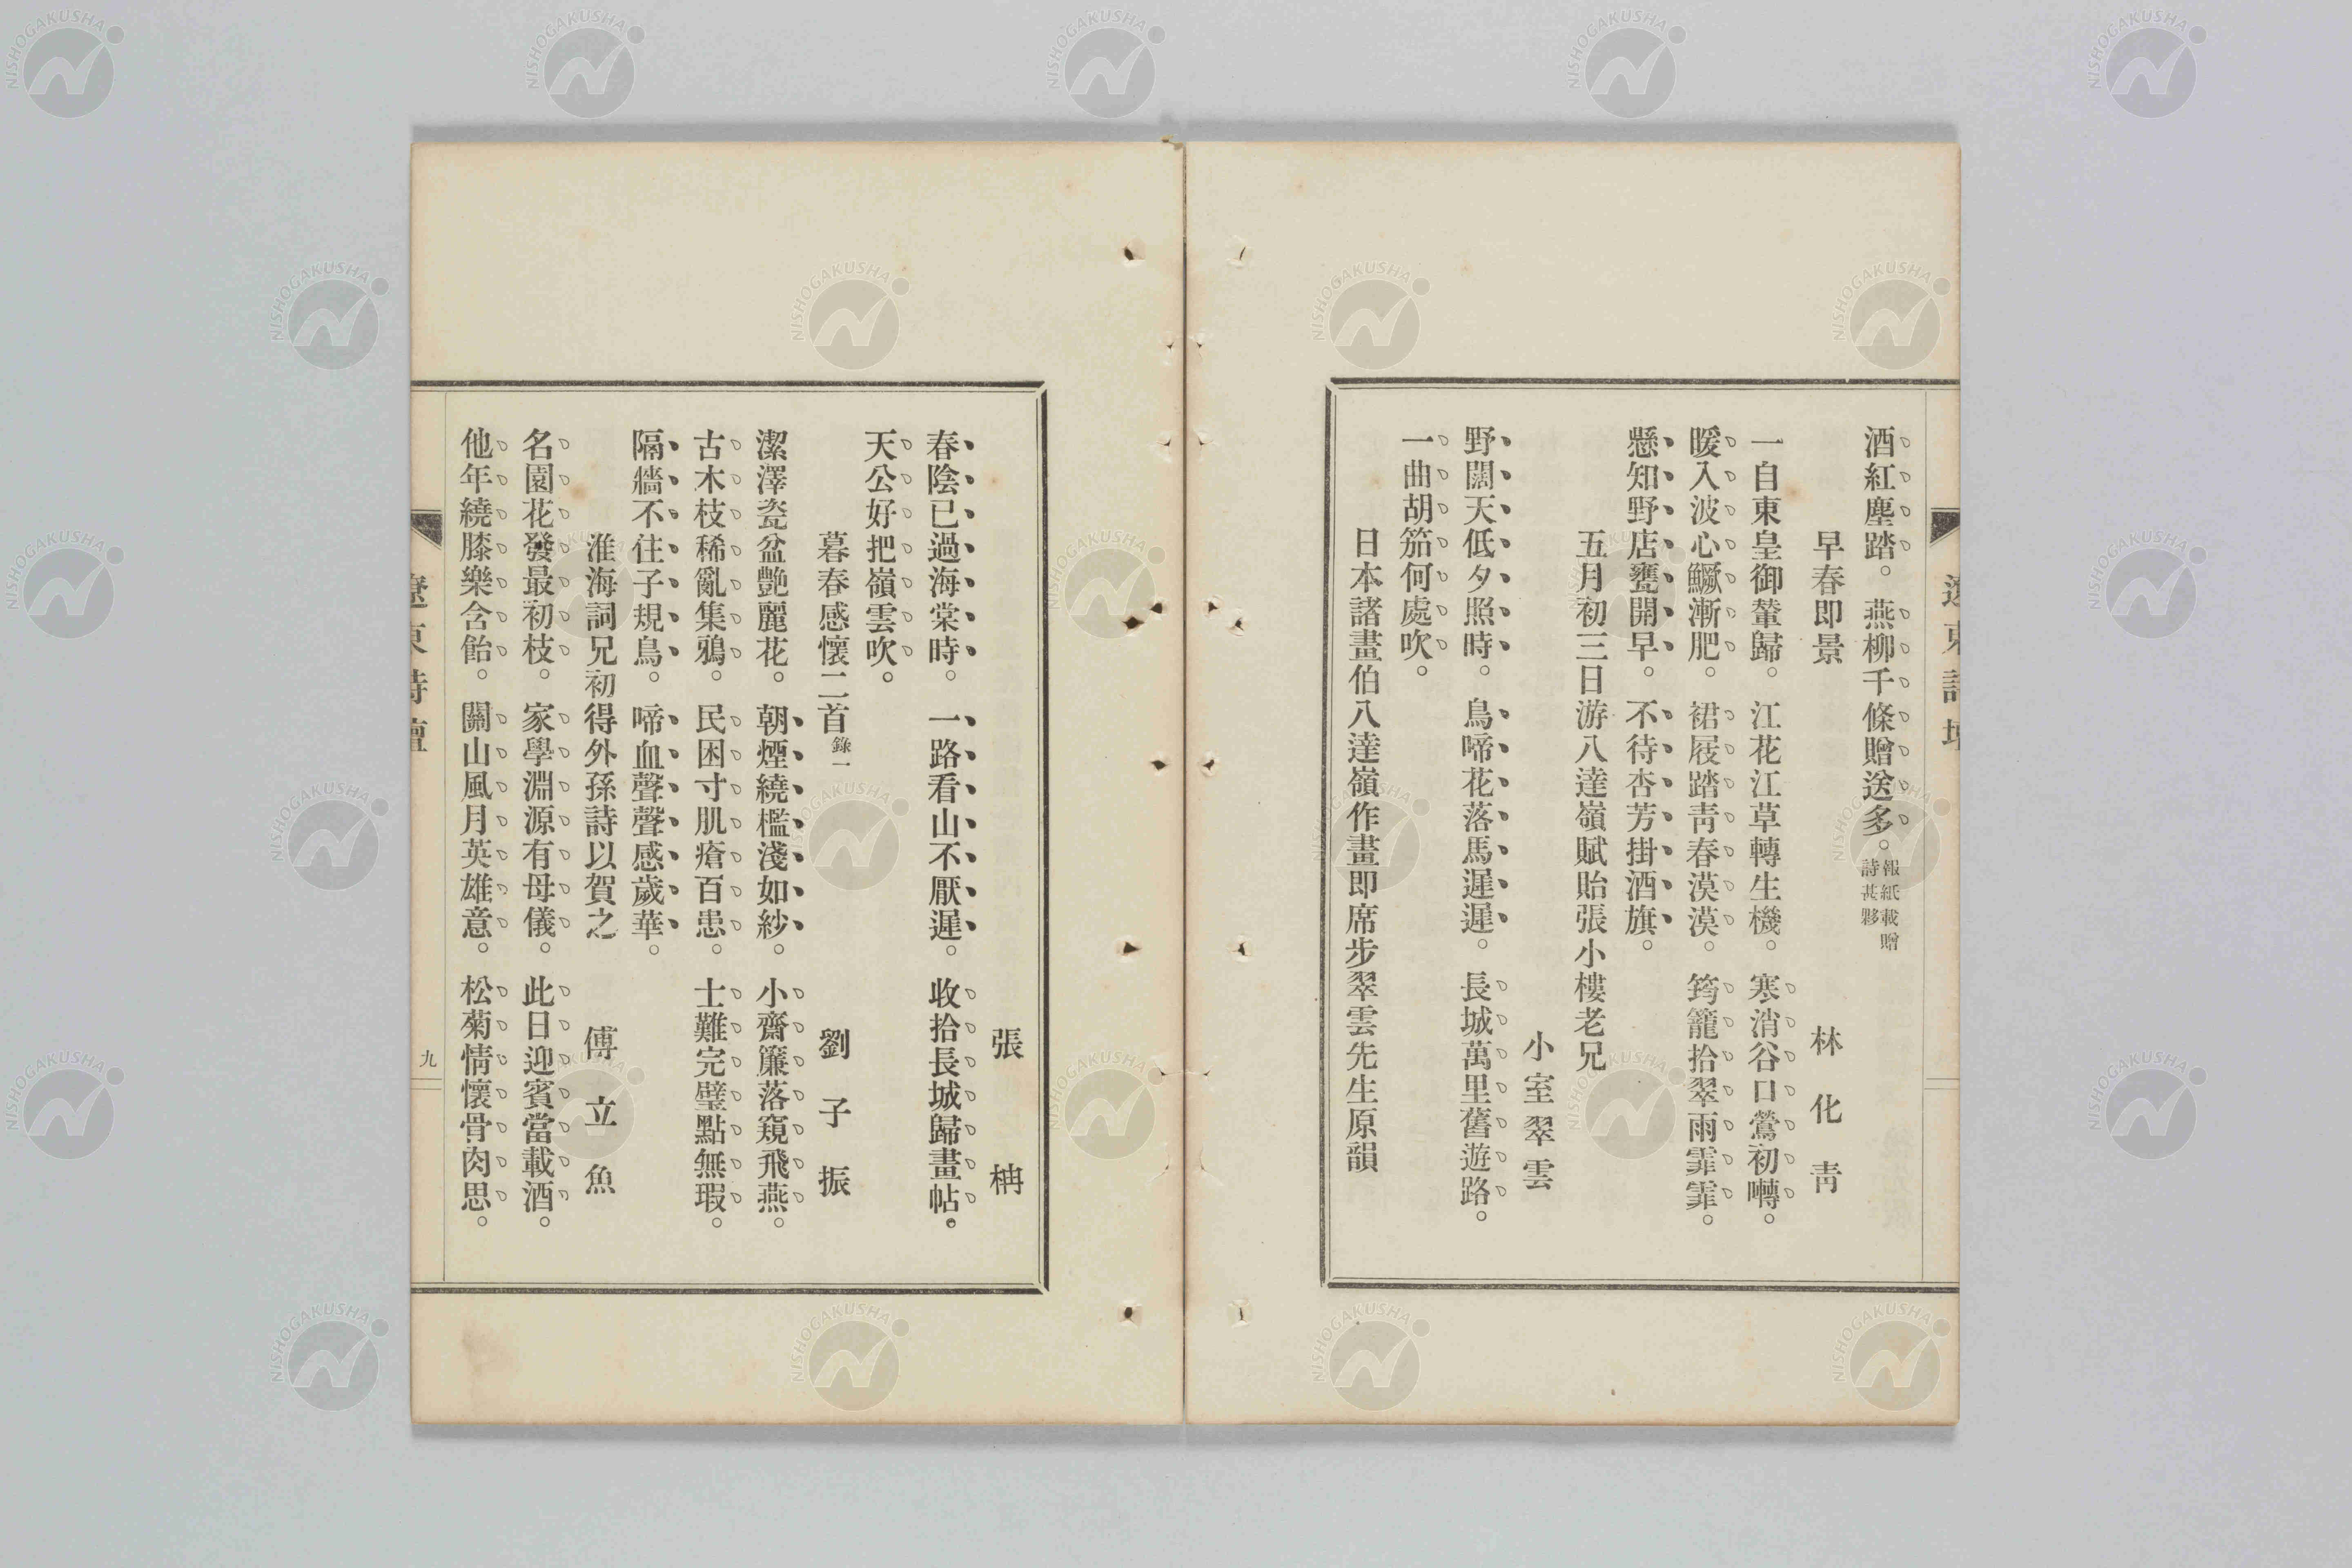 酒紅塵踏。燕柳千條贈送多。報紙載贈詩甚夥
早春即景　林化靑
一自東皇御輦歸。江花江草轉生機。寒消谷口鶯初囀。
暖入波心鱖漸肥。裙屐踏靑春漠漠。筠籠拾翠雨霏霏。
懸知野店甕開早。不待杏芳掛酒旗。
五月初三日游八達嶺賦貽張小樓老兄
小室翠雲
野闊天低夕照時。鳥啼花落馬遲遲。長城萬里舊遊路。
一曲胡笳何處吹。
日本諸畫伯八達嶺作畫即席步翠雲先生原韻
遼東詩壇
張　枏
春陰已過海棠時。一路看山不厭遲。收拾長城歸畫帖。
天公好把嶺雲吹。
暮春感懷二首錄一　劉子振
潔澤瓷盆艷麗花。朝煙繞檻淺如紗。小齋簾落窺飛燕。
古木枝稀亂集鴉。民困寸肌瘡百患。士難完璧點無瑕。
隔牆不住子規鳥。啼血聲聲感歲華。
淮海詞兄初得外孫詩以賀之　傅立魚
名園花發最初枝。家學淵源有母儀。此日迎賓當載酒。
他年繞膝樂含飴。關山風月英雄意。松菊情懷骨肉思。
遼東詩壇
九
NISHOGAKUSHA